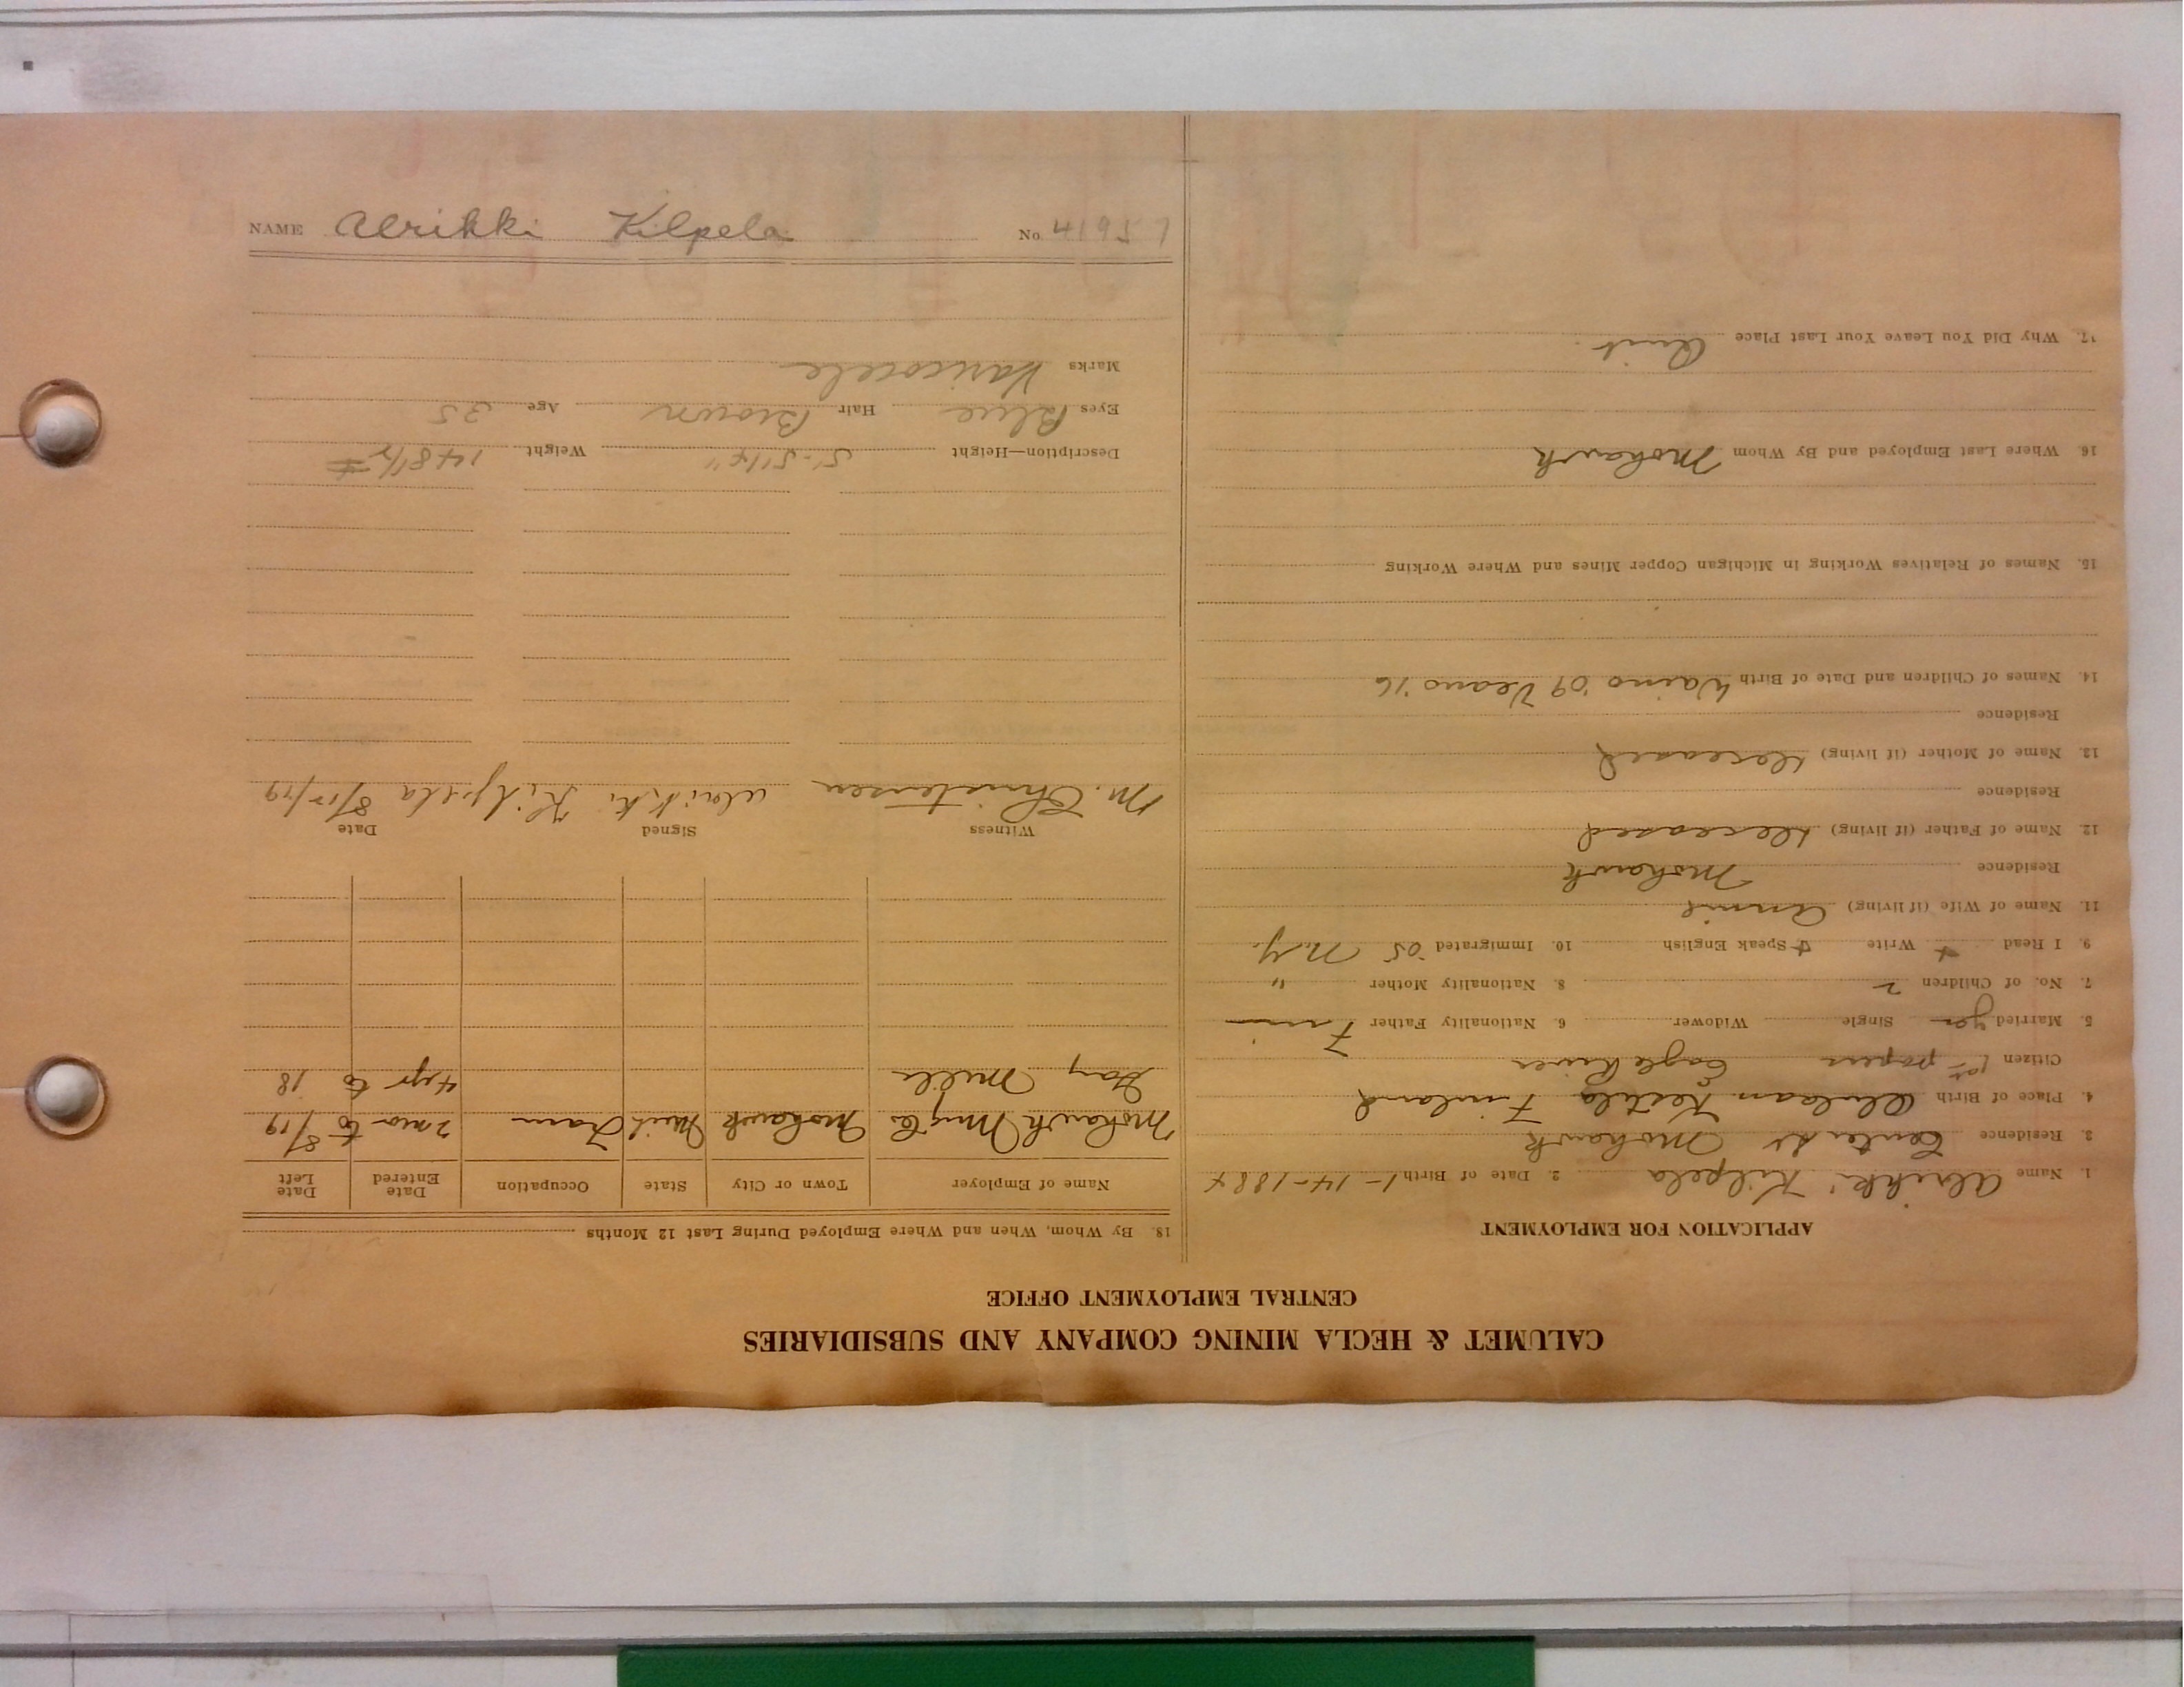 CALUMET & HECLA MINING COMPANY AND SUBSIDIARIES
CENTRAL EMPLOYMENT OFFICE
APPLICATION FOR EMPLOYMENT
1. Name Alrikki Kilpela 2. Date of Birth 1-14-1884
3. Residence Center St Mohawk
4. Place of Birth Kestila Finland
Citizen 1st papers Eagle River
5. Married yes Single Widower 6. Nationality Father Finn
7. No. of Children 2 8. Nationality Mother "
9. I Read + Write + Speak English 10. Immigrated '05 N.Y.
11. Name of Wife (if living) Annie
Residence Mohawk
12. Name of Father (if living) deceased
Residence
13. Name of Mother (if living) deceased
Residence
14. Names of Children and Date of Birth Waino '09 '16
15. Names of Relatives Working in Michigan Copper Mines and Where Working
16. Where Last Employed and By Whom Mohawk
17. Why Did You Leave Your Last Place Quit.
18. By Whom, When and Where Employed During Last 12 Months
Name of Employer Town or City State Occupation Date Entered Date Left
Mohawk Mng Co Mohawk Mich Tram 2 mo to 8/19
Mill 4 yr to 18
Witness Signed Date
M. Christensen Ulrikki Kilpela 8/15/19
Description—Height 5'-5 1/4" Weight 148 1/2 #
Eyes Blue Hair Brown Age 35
Marks Varicocele
NAME Alrikki Kilpela No. 41957